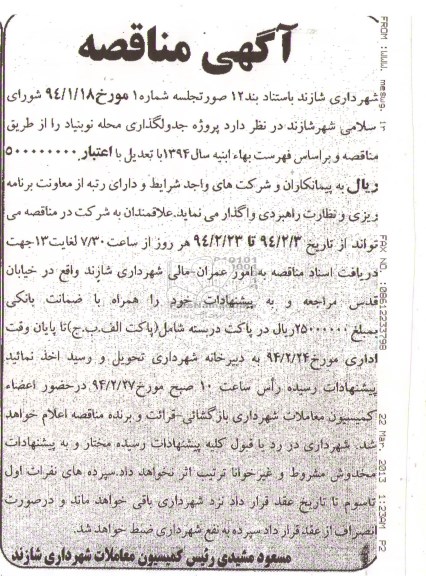 آگهی مناقصه
شهرداری شازند باستناد بند۱۲ صورتجلسه شماره۱ مورخ۹۴/۱/۱۸ شورای
سلامی شهرشازند در نظر دارد پروژه جدولگذاری محله نوبنیاد را از طریق
مناقصه و براساس فهرست بهاء ابنیه سال۱۳۹۴با تعدیل با اعتبار ۵۰۰۰۰۰۰۰۰
ریال به پیمانکاران و شرکت های واجد شرایط و دارای رتبه از معاونت برنامه
ریزی و نظارت راهبردی واگذار می نماید.علاقمندان به شرکت در مناقصه می
تواند از تاریخ ۹۴/۲/۳ تا ۹۴/۲/۲۳ هر روز از ساعت۷/۳۰ لغایت۱۳جهت
دریافت اسناد مناقصه به امور عمران-مالی شهرداری شازند واقع در خیابان
قدس مراجعه و به پیشنهادات خود را همراه با ضمانت بانکی
بمبلغ ۲۵۰۰۰۰۰۰ریال در پاکت دربسته شامل(پاکت الف.ب.ج)تا پایان وقت
اداری مورخ۹۴/۲/۲۴ به دبیرخانه شهرداری تحویل و رسید اخذ نمائید
پیشنهادات رسیده رأس ساعت ۱۰ صبح مورخ۹۴/۲/۲۷ درحضور اعضاء
کمیسیون معاملات شهرداری بازگشائی-قرائت و برنده مناقصه اعلام خواهد
شد. شهرداری در رد یا قبول کلیه پیشنهادات رسیده مختار و به پیشنهادات
مخدوش مشروط و غیرخوانا ترتیب اثر نخواهد داد.سپرده های نفرات اول
تاسوم تا تاریخ عقد قرار داد نزد شهرداری باقی خواهد ماند و درصورت
انصراف از عقد قرار داد سپرده به نفع شهرداری ضبط خواهد شد.
مسعود مشیدی رئیس کمیسیون معاملات شهرداری شازند
FROM :www. FAX NO. :08612233798 22 Mar. 2013 1:23AM P2